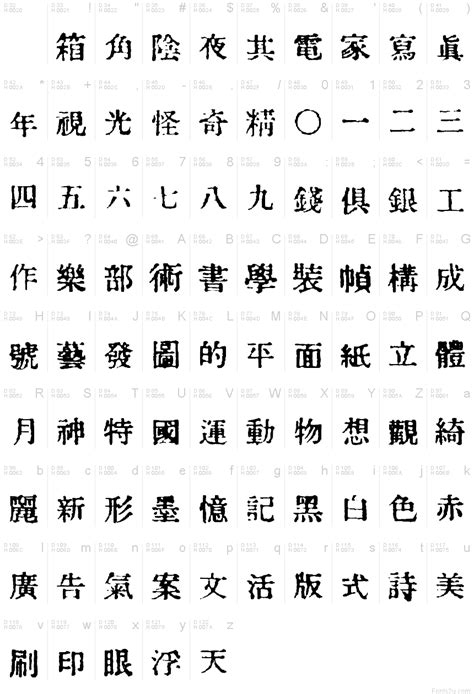 ! " # $ % & ' ( )
箱 角 陰 夜 其 電 家 寫 眞
* + , - . / 0 1 2 3
年 視 光 怪 奇 精 〇 一 二 三
4 5 6 7 8 9 : ; < =
四 五 六 七 八 九 錢 俱 銀 工
> ? @ A B C D E F G
作 樂 部 術 書 學 裝 幀 構 成
H I J K L M N O P Q
號 藝 發 圖 的 平 面 紙 立 體
R S T U V W X Y Z a
月 神 特 國 運 動 物 想 觀 綺
b c d e f g h i j k
麗 新 形 墨 憶 記 黑 白 色 赤
l m n o p q r s t u
廣 告 氣 案 文 活 版 式 詩 美
v w x y z
刷 印 眼 浮 天